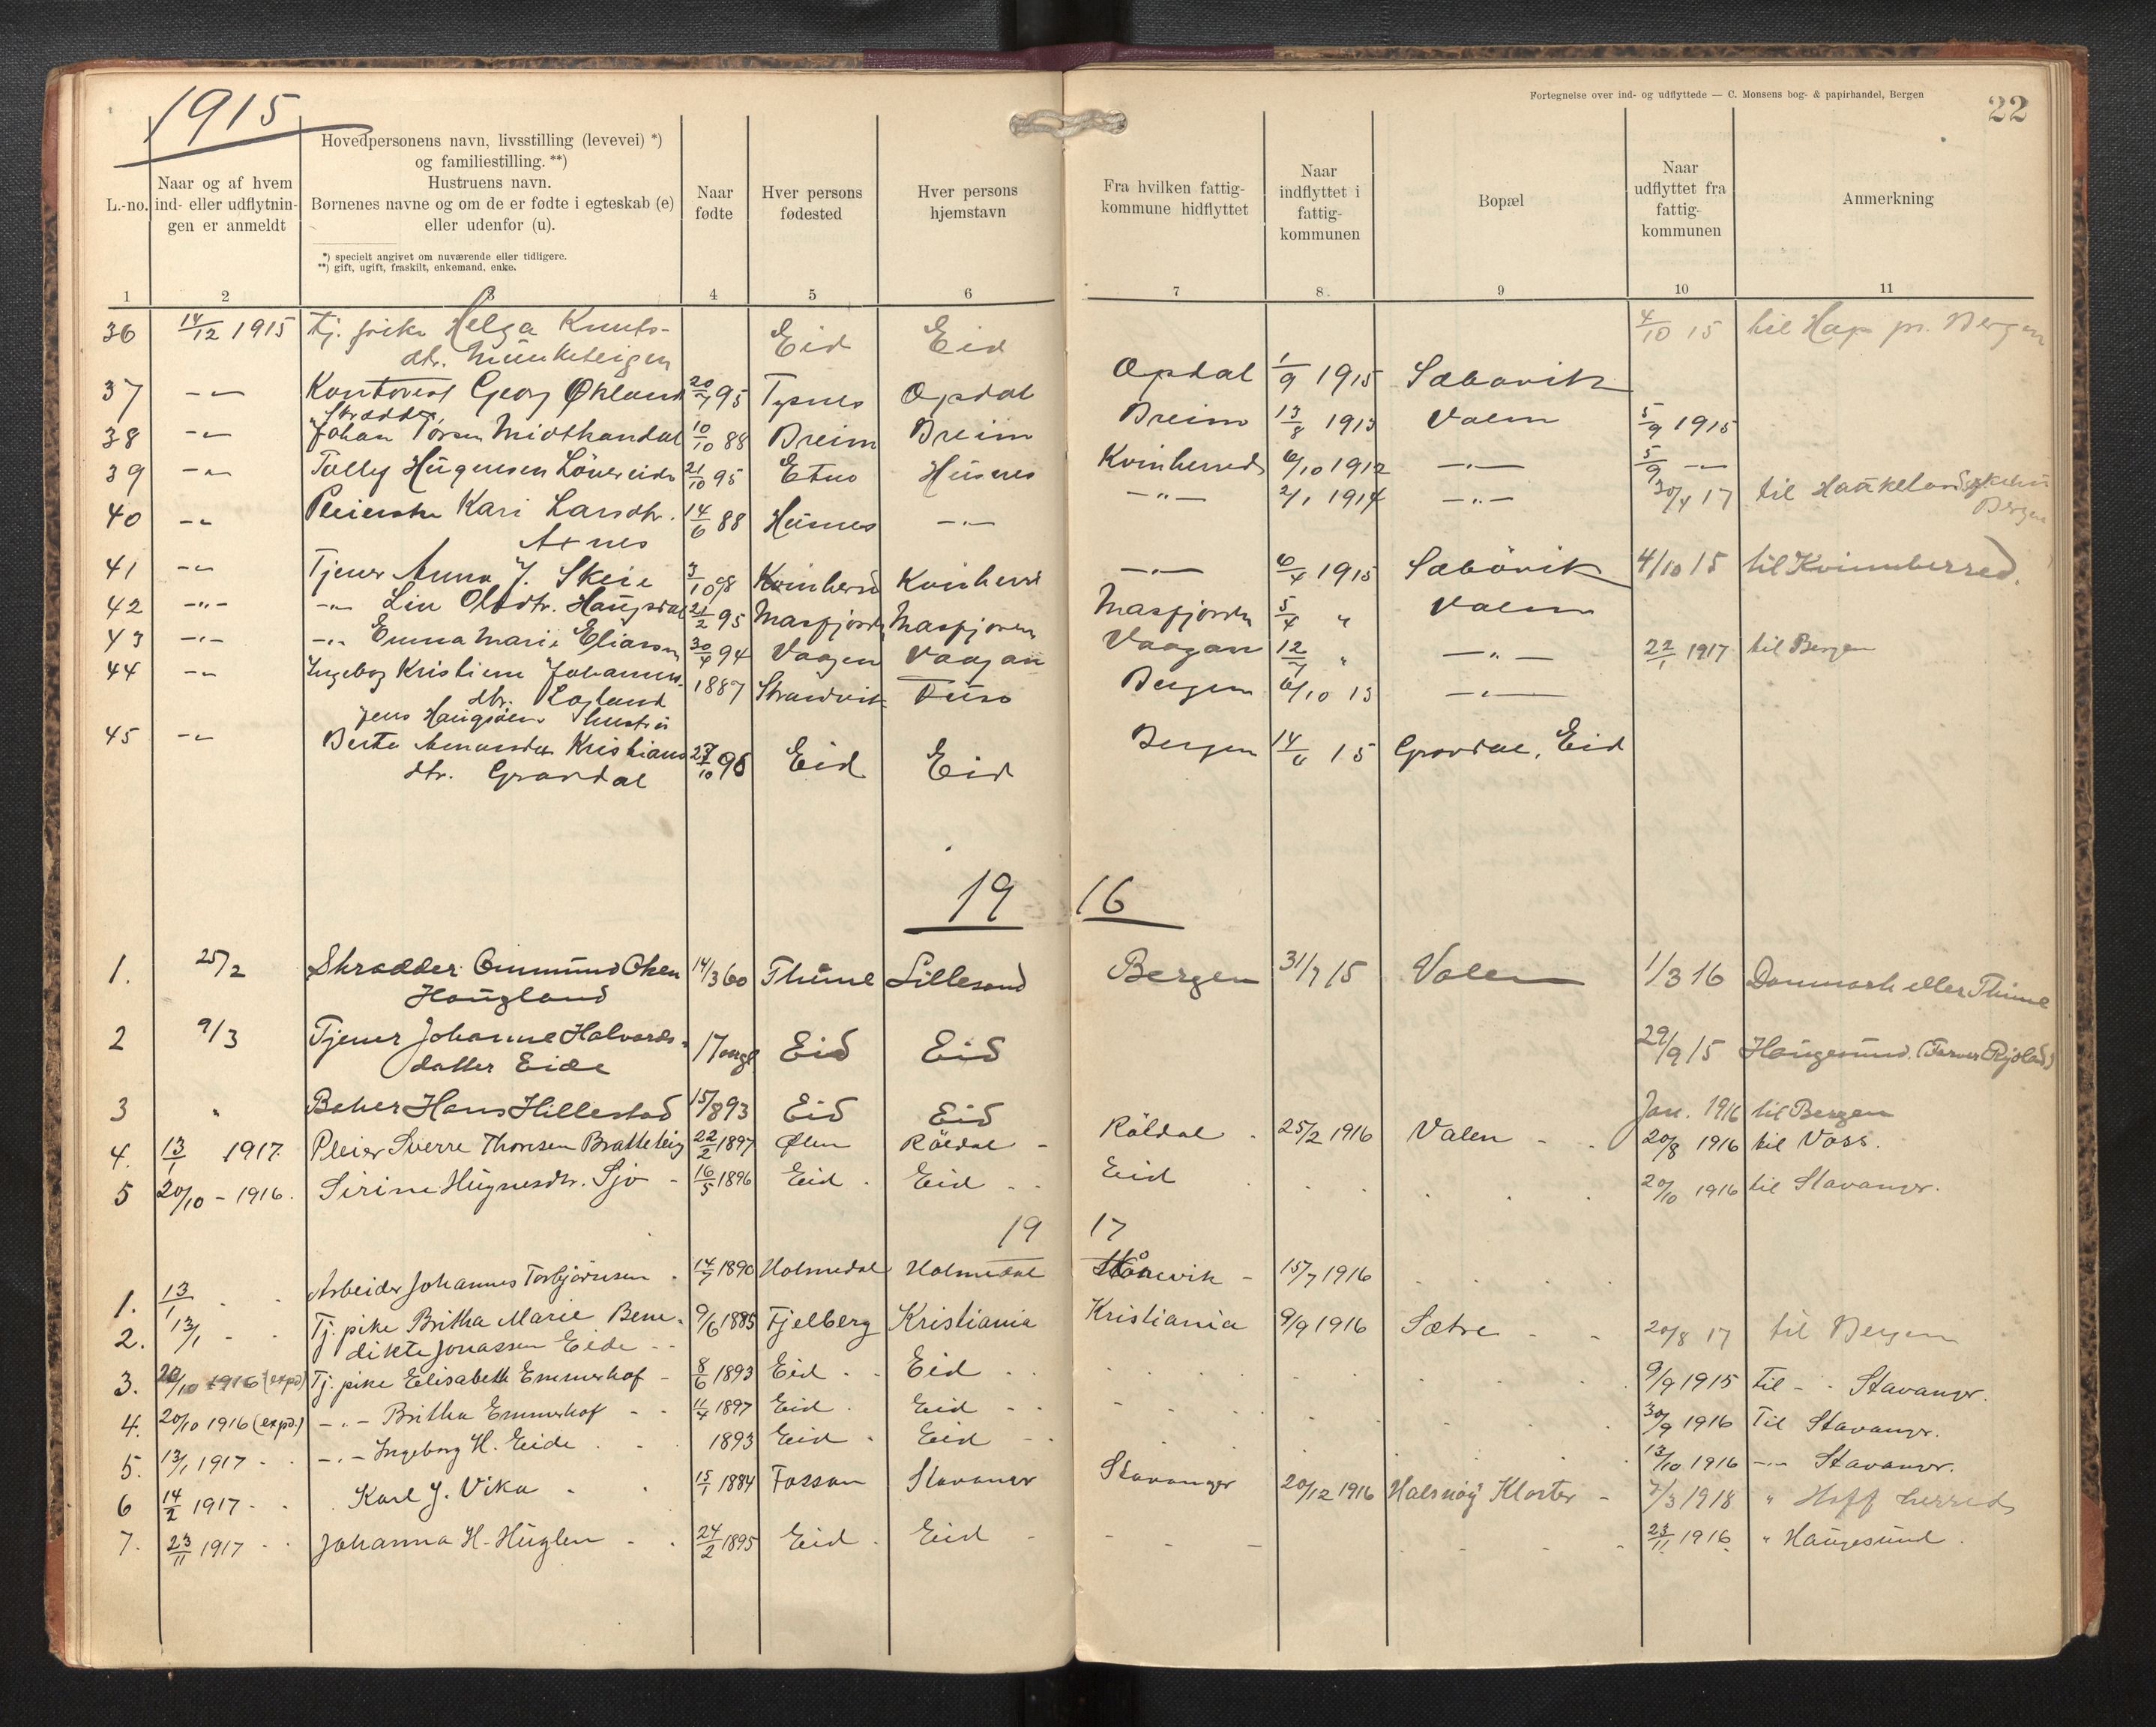 1915
Fortegnelse over ind- og udflyttede — C. Monsens bog- & papirhandel, Bergen
22
L.-no.
Naar og af hvem
ind- eller udflytnin-
gen er anmeldt
Hovedpersonens navn, livsstilling (levevei) *)
og familiestilling. **)
Hustruens navn.
Børnenes navne og om de er fødte i egteskab (e)
eller udenfor (u).
*) specielt angivet om nuværende eller tidligere.
**) gift, ugift, fraskilt, enkemand, enke.
Naar
fødte
Hver persons
fødested
Hver persons
hjemstavn
Fra hvilken fattig-
kommune hidflyttet
Naar
indflyttet i
fattig-
kommunen
Bopæl
Naar
udflyttet fra
fattig-
kommunen
Anmerkning
1 2 3 4 5 6 7 8. 9 10 11
36 14/12 1915 Tj. pike Helga Knuts- Eid Eid 4/10 15 til Hop pr. Bergen
dtr. Munketeigen
37 -"- Kontorist Georg Økland 20/7 95 Tysnes Opdal Opdal 1/9 1915 Sæbøvik
Skrædder
38 -"- Johan Torsen Midthandal 10/10 88 Breim Breim Breim 13/8 1913 Valen 5/9 1915
39 -"- Tolley Hugnesen 21/10 95 Etne Husnes Kvinherred 6/10 1912 -"- 5/9 -"-
40 -"- Pleierske Kari Larsdtr. 14/6 88 Husnes -"- -"- 2/1 1914 -"- 30/4 17 til Haukeland sykehus
Axnes Bergen
41 -"- Tjener Anna J. Skeie 3/10 98 Kvinherrd Kvinherrd -"- 6/4 1915 Sæbövik 4/10 15 til Kvinnherred.
42 -"- -"- Lin Olsdtr. Haugsdal 21/2 95 Masfjorden Masfjorden Masfjorden 5/4 " Valen
43 -"- -"- Emma Marie Eliasen 30/4 94 Vaagen Vaagan Vaagan 12/7 " -"- 22/1 1917 til Bergen
44 -"- Ingeborg Kristine Johannes- 1887 Strandvik Fuse Bergen 6/10 15 -"-
dtr.
Jens hustru
45 -"- Berta Amanda Kristians 27/10 96 Eid Eid Bergen 14/6 15 Gravdal, Eid
dtr. Gravdal
19 16
1. 25/2 Skrædder Ommund Olsen 14/3 60 Thime Lillesand Bergen 31/7 15 Valen 1/3 16 Danmark eller Thime
Haugland
2 9/3 Tjener Johanne Halvards- 17 aar gl Eid Eid 29/9 15 Haugesund.
datter Eide
3 " Baker Hans Hillestad 15/8 93 Eid Eid Jan. 1916 til Bergen
4. 13/1 1917. Pleier Sverre Thoresen Bratteteig 22/2 1897 Ølen Röldal - Röldal 25/2 1916 Valen 20/8 1916 til Voss.
5 20/10 - 1916. Sirine Hugnesdtr. Sjo - 16/5 1896 Eid Eid Eid 20/10 1916 til Stavanger.
19 17
1. 13/1 Arbeider Johannes Torbjörnsen 14/7 1890 Holmedal Holmedal Skånevik - 15/7 1916
2. 13/1 - Tj. pike Britha Marie Bene- 9/6 1885 Fjelberg Kristiania Kristiania 9/9 1916 Sætre - - 20/8 17 til Bergen
dikte Jonassen Eide
3. 20/10 1916 (expd) Tj. pike Elisabeth Emmerhof - 8/6 1893 Eid Eid 9/9 1915 Til - Stavanger.
4. 20/10 1916 (expd.) -"- Britha Emmerhof 11/4 1897 Eid Eid 30/9 1916 Til Stavanger.
5. 13/1 1917 -"- Ingeborg H. Eide 1893 Eid Eid 13/10 1916 -"- Stavanger.
6 14/2 1917 Karl J. Vika 15/1 1884 Fossan Stavanger Stavanger 20/12 1916 Halsnøy Kloster - 7/3 1918 " Hoff herred
7. 23/11 1917 Johanna H. Huglen 24/2 1895 Eid Eid 23/11 1916 " Haugesund.